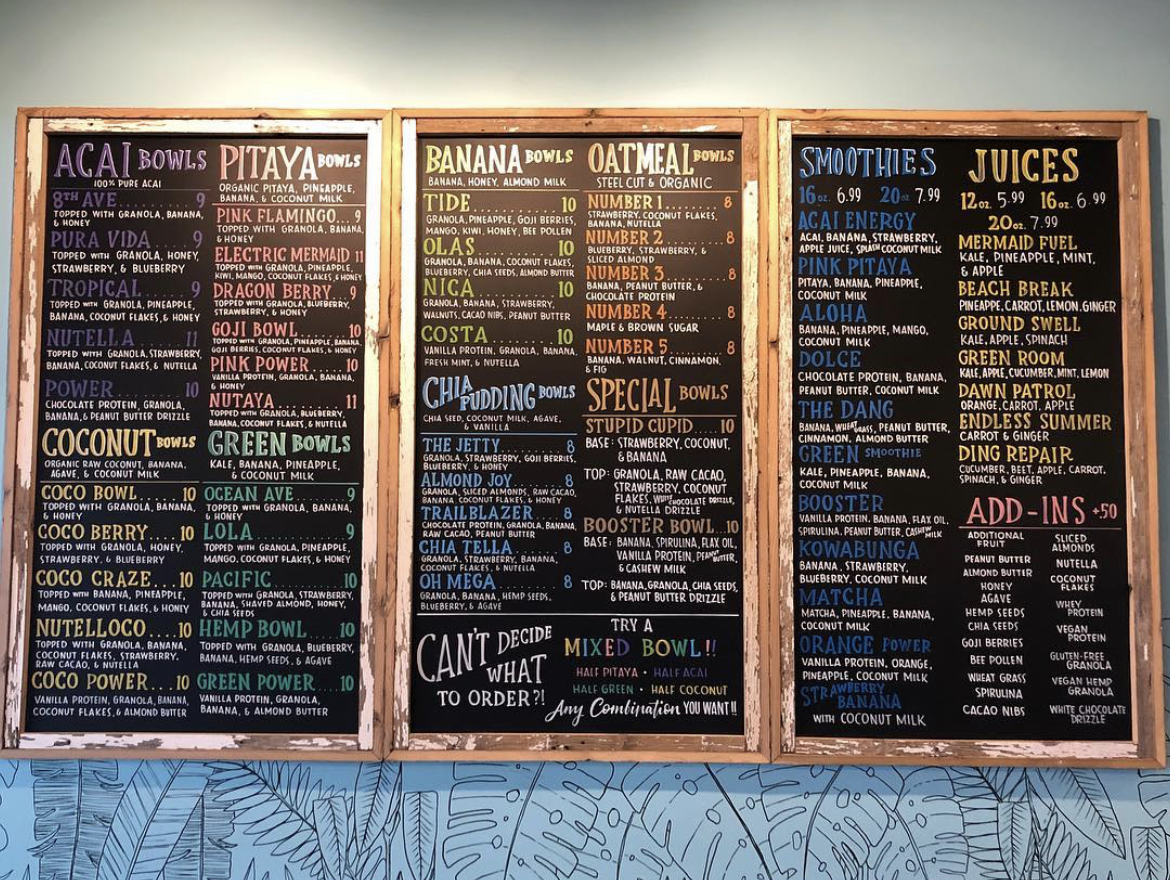 ACAI BOWLS
100% PURE ACAI
8TH AVE 9
TOPPED WITH GRANOLA, BANANA,
& HONEY
PURA VIDA 9
TOPPED WITH GRANOLA, HONEY,
STRAWBERRY, & BLUEBERRY
TROPICAL 9
TOPPED WITH GRANOLA, PINEAPPLE,
BANANA, COCONUT FLAKES, & HONEY
NUTELLA 11
TOPPED WITH GRANOLA, STRAWBERRY,
BANANA, COCONUT FLAKES, & NUTELLA
POWER 10
CHOCOLATE PROTEIN, GRANOLA,
BANANA, & PEANUT BUTTER DRIZZLE
COCONUT BOWLS
ORGANIC RAW COCONUT, BANANA,
AGAVE, & COCONUT MILK
COCO BOWL..... 10
TOPPED WITH GRANOLA, BANANA,
& HONEY
COCO BERRY.... 10
TOPPED WITH GRANOLA, HONEY,
STRAWBERRY, & BLUEBERRY
COCO CRAZE... 10
TOPPED WITH BANANA, PINEAPPLE,
MANGO, COCONUT FLAKES, & HONEY
NUTELLOCO.... 10
TOPPED WITH GRANOLA, BANANA,
COCONUT FLAKES, STRAWBERRY,
RAW CACAO, & NUTELLA
COCO POWER... 10
VANILLA PROTEIN, GRANOLA, BANANA,
COCONUT FLAKES, & ALMOND BUTTER
PITAYA BOWLS
ORGANIC PITAYA, PINEAPPLE,
BANANA, & COCONUT MILK
PINK FLAMINGO... 9
TOPPED WITH GRANOLA, BANANA,
& HONEY
ELECTRIC MERMAID 11
TOPPED WITH GRANOLA, PINEAPPLE,
KIWI, MANGO, COCONUT FLAKES, & HONEY
DRAGON BERRY... 9
TOPPED WITH GRANOLA, BLUEBERRY,
STRAWBERRY, & HONEY
GOJI BOWL....... 10
TOPPED WITH GRANOLA, PINEAPPLE, BANANA,
GOJI BERRIES, COCONUT FLAKES, & HONEY
PINK POWER..... 10
VANILLA PROTEIN, GRANOLA, BANANA,
& HONEY
NUTAYA......... 11
TOPPED WITH GRANOLA, BLUEBERRY,
BANANA, COCONUT FLAKES, & NUTELLA
GREEN BOWLS
KALE, BANANA, PINEAPPLE,
& COCONUT MILK
OCEAN AVE....... 9
TOPPED WITH GRANOLA, BANANA,
& HONEY
LOLA............ 9
TOPPED WITH GRANOLA, PINEAPPLE,
MANGO, COCONUT FLAKES, & HONEY
PACIFIC......... 10
TOPPED WITH GRANOLA, STRAWBERRY,
BANANA, SHAVED ALMOND, HONEY,
& CHIA SEEDS
HEMP BOWL..... 10
TOPPED WITH GRANOLA, BLUEBERRY,
BANANA, HEMP SEEDS, & AGAVE
GREEN POWER... 10
VANILLA PROTEIN, GRANOLA,
BANANA, & ALMOND BUTTER
BANANA BOWLS
BANANA, HONEY, ALMOND MILK
TIDE............ 10
GRANOLA, PINEAPPLE, GOJI BERRIES,
MANGO, KIWI, HONEY, BEE POLLEN
OLAS............ 10
GRANOLA, BANANA, COCONUT FLAKES,
BLUEBERRY, CHIA SEEDS, ALMOND BUTTER
NICA............ 10
GRANOLA, BANANA, STRAWBERRY,
WALNUTS, CACAO NIBS, PEANUT BUTTER
COSTA........... 10
VANILLA PROTEIN, GRANOLA, BANANA,
FRESH MINT, & NUTELLA
CHIA PUDDING BOWLS
CHIA SEED, COCONUT MILK, AGAVE,
& VANILLA
THE JETTY....... 8
GRANOLA, STRAWBERRY, GOJI BERRIES,
BLUEBERRY, & HONEY
ALMOND JOY..... 8
GRANOLA, SLICED ALMONDS, RAW CACAO,
BANANA, COCONUT FLAKES, & HONEY
TRAILBLAZER... 8
CHOCOLATE PROTEIN, GRANOLA, BANANA,
RAW CACAO, PEANUT BUTTER
CHIA TELLA..... 8
GRANOLA, STRAWBERRY, BANANA,
COCONUT FLAKES, & NUTELLA
OH MEGA........ 8
GRANOLA, BANANA, HEMP SEEDS,
BLUEBERRY, & AGAVE
OATMEAL BOWLS
STEEL CUT & ORGANIC
NUMBER 1........ 8
STRAWBERRY, COCONUT FLAKES,
BANANA, NUTELLA
NUMBER 2........ 8
BLUEBERRY, STRAWBERRY, &
SLICED ALMOND
NUMBER 3........ 8
BANANA, PEANUT BUTTER, &
CHOCOLATE PROTEIN
NUMBER 4........ 8
MAPLE & BROWN SUGAR
NUMBER 5........ 8
BANANA, WALNUT, CINNAMON,
& FIG
SPECIAL BOWLS
STUPID CUPID.... 10
BASE: STRAWBERRY, COCONUT,
& BANANA
TOP: GRANOLA, RAW CACAO,
STRAWBERRY, COCONUT
FLAKES, WHITE CHOCOLATE DRIZZLE,
& NUTELLA DRIZZLE
BOOSTER BOWL.. 10
BASE: BANANA, SPIRULINA, FLAX OIL,
VANILLA PROTEIN, PEANUT BUTTER,
& CASHEW MILK
TOP: BANANA, GRANOLA, CHIA SEEDS,
& PEANUT BUTTER DRIZZLE
CAN'T DECIDE
WHAT
TO ORDER?!
TRY A
MIXED BOWL!!
HALF PITAYA • HALF ACAI
HALF GREEN • HALF COCONUT
Any Combination YOU WANT!!
SMOOTHIES
16 OZ. 6.99 20 OZ. 7.99
ACAI ENERGY
ACAI, BANANA, STRAWBERRY,
APPLE JUICE, SPLASH COCONUT MILK
PINK PITAYA
PITAYA, BANANA, PINEAPPLE,
COCONUT MILK
ALOHA
BANANA, PINEAPPLE, MANGO,
COCONUT MILK
DOLCE
CHOCOLATE PROTEIN, BANANA,
PEANUT BUTTER, COCONUT MILK
THE DANG
BANANA, WHEATGRASS, PEANUT BUTTER,
CINNAMON, ALMOND BUTTER
GREEN SMOOTHIE
KALE, PINEAPPLE, BANANA,
COCONUT MILK
BOOSTER
VANILLA PROTEIN, BANANA, FLAX OIL,
SPIRULINA, PEANUT BUTTER, CASHEW MILK
KOWABUNGA
BANANA, STRAWBERRY,
BLUEBERRY, COCONUT MILK
MATCHA
MATCHA, PINEAPPLE, BANANA,
COCONUT MILK
ORANGE POWER
VANILLA PROTEIN, ORANGE,
PINEAPPLE, COCONUT MILK
STRAWBERRY BANANA
WITH COCONUT MILK
JUICES
12 OZ. 5.99 16 OZ. 6.99
20 OZ. 7.99
MERMAID FUEL
KALE, PINEAPPLE, MINT,
& APPLE
BEACH BREAK
PINEAPPLE, CARROT, LEMON, GINGER
GROUND SWELL
KALE, APPLE, SPINACH
GREEN ROOM
KALE, APPLE, CUCUMBER, MINT, LEMON
DAWN PATROL
ORANGE, CARROT, APPLE
ENDLESS SUMMER
CARROT & GINGER
DING REPAIR
CUCUMBER, BEET, APPLE, CARROT,
SPINACH, & GINGER
ADD-INS +50
ADDITIONAL
FRUIT
PEANUT BUTTER
ALMOND BUTTER
HONEY
AGAVE
HEMP SEEDS
CHIA SEEDS
GOJI BERRIES
BEE POLLEN
WHEAT GRASS
SPIRULINA
CACAO NIBS
SLICED
ALMONDS
NUTELLA
COCONUT
FLAKES
WHEY
PROTEIN
VEGAN
PROTEIN
GLUTEN-FREE
GRANOLA
VEGAN HEMP
GRANOLA
WHITE CHOCOLATE
DRIZZLE